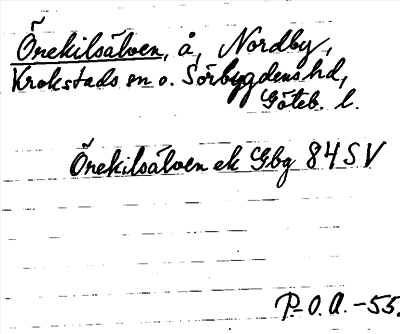 Önekilsälven, å, Nordby,
Krokstads sn o. Sörbygdens hd,
Göteb. l.
Önekilsälven ek Gbg 84 SV
P-O.A. -55.